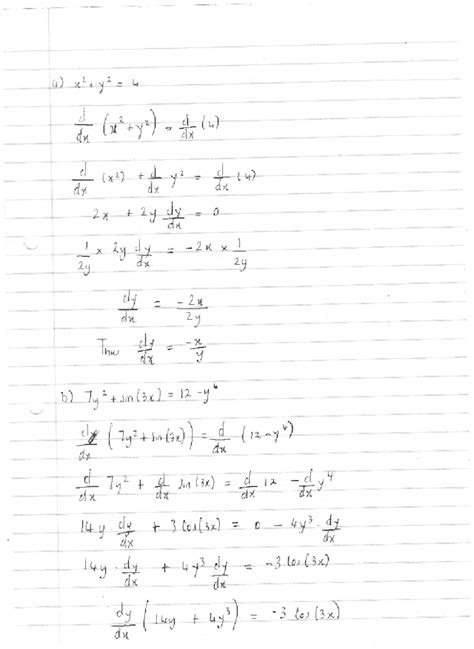 a) x² + y² = 4
d/dx (x² + y²) = d/dx (4)
d/dx (x²) + d/dx y² = d/dx (4)
2x + 2y dy/dx = 0
1/2y × 2y dy/dx = -2x × 1/2y
dy/dx = -2x/2y
Thus dy/dx = -x/y
b) 7y² + sin(3x) = 12 - y⁴
d/dx (7y² + sin(3x)) = d/dx (12 - y⁴)
d/dx 7y² + d/dx sin(3x) = d/dx 12 - d/dx y⁴
14y · dy/dx + 3 cos(3x) = 0 - 4y³ · dy/dx
14y · dy/dx + 4y³ · dy/dx = -3 cos(3x)
dy/dx (14y + 4y³) = -3 cos(3x)